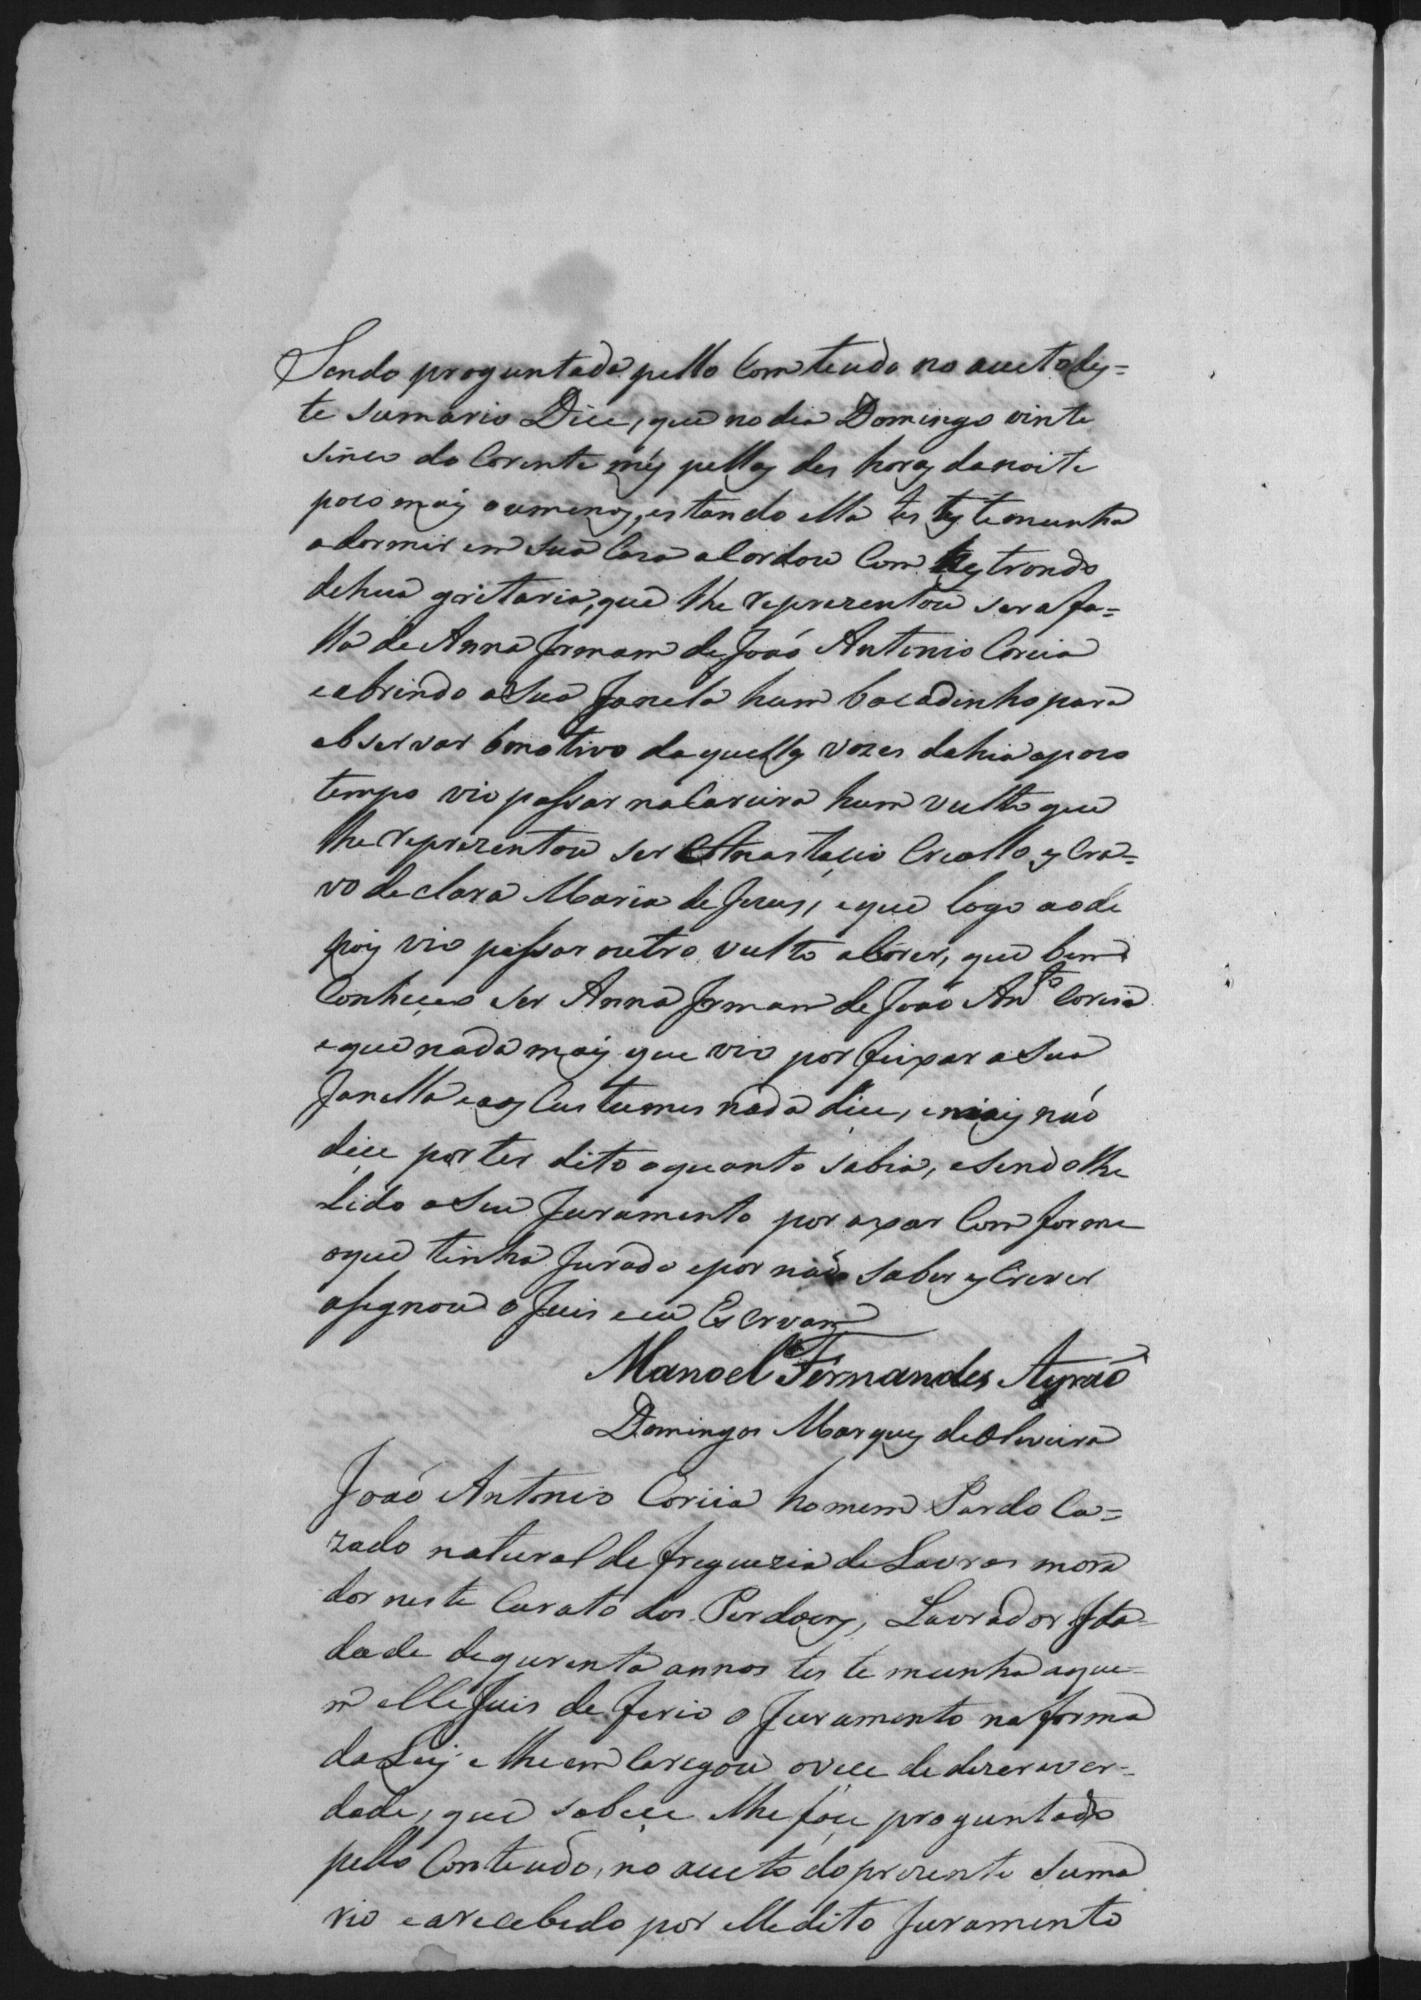 Sendo proguntada pello Comteudo no aucto des=
te sumario Dice, que no dia Domingo vinte
sinco do Corente mes pellas des horas da noite
poco mais oumenos, estando ella testemunha
adormir em sua Caza acordou Com estrondo
dehua gritaria, que lhe reprezentou ser a fa=
lla de Anna Jrmam de Joaó Antonio Coreia
eabrindo asua Janela hum bocadinho para
observar omotivo daquellas vozes dahia apoco
tempo vio passar na Careira hum vulto que
lhe reprezentou ser Anastacio Creollo escra=
vo de clara Maria de Jezus, eque logo aode
pois vio passar outro vulto aCorer, que bem
Conheceo ser Anna Jrmam de Joaó Anto Coreia
eque nada mais que vio por feixar asua
Janella eaos Custumes nada dice, emais naó
dice por ter dito oquanto sabia, esendolhe
Lido oSeu Juramento por axar Comforme
oque tinha Jurado epor naó saber escrever
asignou o Juis eeu Escrvam
Manoel Fernandes Ayraó
Domingos Marques deOliveira
Joaó Antonio Coreia homem Pardo Ca=
zado natural de freguezia de Lavras mora
dor neste Curato dos Perdoens, Lavrador Jda-
dade dequrenta annos testemunha aque-
m elle Juis deferio o Juramento na forma
daLey elhe emCaregou ovece de dizer aver-
dade, que soBece elhe foce proguntado
pello Conteudo, no aucto do prezente suma
rio earecebido por elle dito Juramento